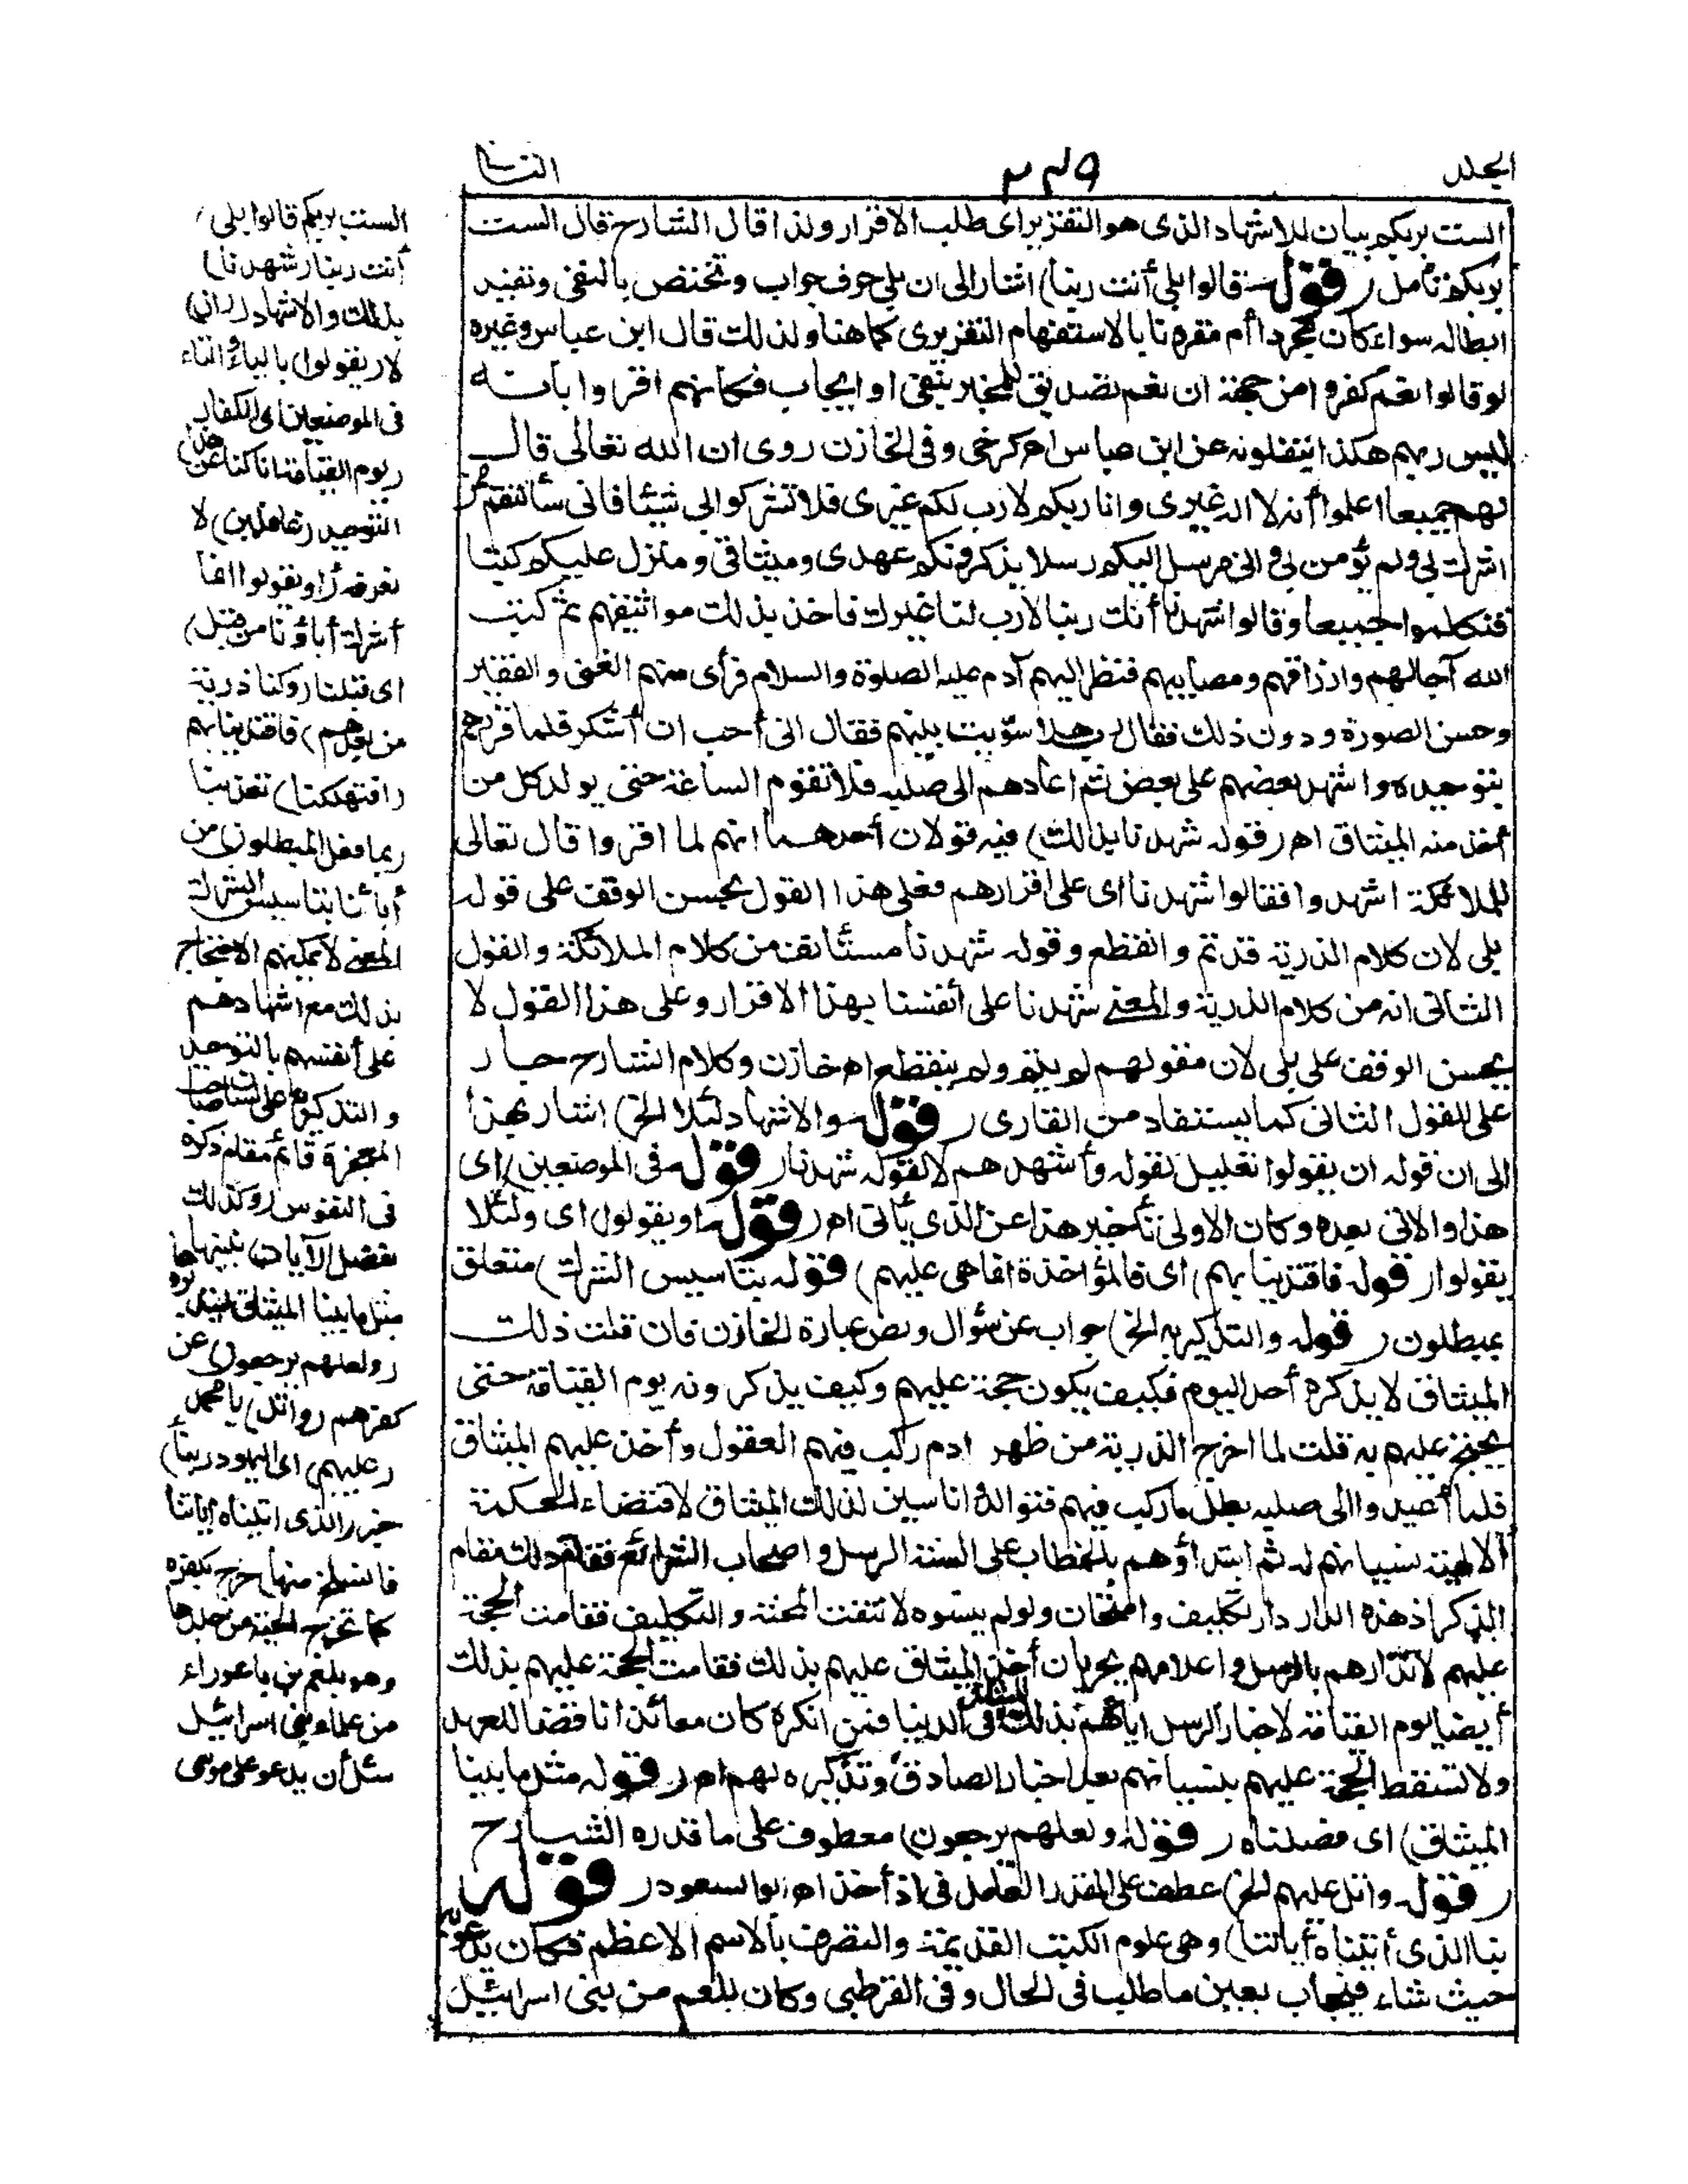 الجلد
٢٣٩
الثانى
الست بربكم بيان للاشهاد الذى هو التقرير اى طلب الاقرار ولذا قال الشارح قال الست
بربكم تأمل (قوله قالوا بلى أنت ربنا) اشار الى ان بلى حرف جواب وتختص بالنفى وتفيد
ابطاله سواء كان مجردا أم مقرونا بالاستفهام التقريرى كما هنا ولذلك قال ابن عباس وغيره
لو قالوا نعم كفروا من جهة ان نعم تصديق للمخبر بنفى او ايجاب فكانهم اقروا بأنه
ليس ربهم هكذا ينقلونه عن ابن عباس اه كرخى وفى الخازن روى ان الله تعالى قال
لهم جميعا اعلموا أنه لا اله غيرى وانا ربكم لا رب لكم غيرى فلا تشركوا بى شيئا فانى سأنتقم ممن
اشرك بى ولم يؤمن بى وانى مرسل اليكم رسلا يذكرونكم عهدى وميثاقى ومنزل عليكم كتبا
فتكلموا جميعا وقالوا شهدنا أنك ربنا لا رب لنا غيرك فاخذ بذلك مواثيقهم ثم كتب
الله آجالهم وارزاقهم ومصايبهم فنظر اليهم آدم عليه الصلوة والسلام فرأى منهم الغنى والفقير
وحسن الصورة ودون ذلك فقال رب هلا سوّيت بينهم فقال انى أحب ان أشكر فلما قررهم
بتوحيده واشهد بعضهم على بعض ثم اعادهم الى صلبه فلا تقوم الساعة حتى يولد كل من
أخذ منه الميثاق اه (قوله شهدنا بذلك) فيه قولان أحدهما انهم لما اقروا قال تعالى
للملائكة اشهدوا فقالوا شهدنا اى على اقرارهم فعلى هذا القول يحسن الوقف على قوله
بلى لان كلام الذرية قد تم وانقطع وقوله شهدنا مستأنف من كلام الملائكة والقول
الثانى انه من كلام الذرية والمعنى شهدنا على أنفسنا بهذا الاقرار وعلى هذا القول لا
يحسن الوقف على بلى لان مقولهم لم يتم ولم ينقطع اه خازن وكلام الشارح جار
على القول الثانى كما يستفاد من القارى (قوله والاشهاد لئلا الخ) اشار بهذا
الى ان قوله ان يقولوا تعليل لقوله وأشهدهم لا لقوله شهدنا (قوله فى الموضعين) اى
هذا والاتى بعده وكان الاولى تأخير هذا عن الذى يأتى اه (قوله او يقولوا) اى ولئلا
يقولوا (قوله فاقتدينا بهم) اى فالمؤاخذة انما هى عليهم) قوله بتاسيس الشرك) متعلق
بمبطلون (قوله والتذكير به الخ) جواب عن سؤال ونص عبارة الخازن فان قلت ذلك
الميثاق لا يذكره أحد اليوم فكيف يكون حجة عليهم وكيف يذكرونه يوم القيامة حتى
يحتج عليهم به قلت لما اخرج الذرية من ظهر ادم ركب فيهم العقول وأخذ عليهم الميثاق
فلما أعيدوا الى صلبه بطل ما ركب فيهم فتوالدوا ناسين لذلك الميثاق لاقتضاء الحكمة
الالهية نسيانهم له ثم ابتدأوهم بالخطاب على السنة الرسل واصحاب الشرائع فقام ذلك مقام
الذكر اذ هذه الدار دار تكليف وامتحان ولو لم ينسوه لانتفت المحنة والتكليف فقامت الحجة
عليهم لانذارهم بالرسل واعلامهم بجريان أخذ الميثاق عليهم بذلك فقامت الحجة عليهم بذلك
أيضا يوم القيامة لاخبار الرسل اياهم بذلك الميثاق فى الدنيا فمن انكره كان معاندا ناقضا للعهد
ولا تسقط الحجة عليهم بنسيانهم بعد اخبار الصادق وتذكيره لهم اه (قوله مثل ما بينا
الميثاق) اى فصلناه (قوله ولعلهم يرجعون) معطوف على ما قدره الشارح
(قوله واتل عليهم الخ) عطف على المقدر العامل فى اذ أخذ اه ابو السعود (قوله
نبأ الذى أتيناه أياتنا) وهى علوم الكتب القديمة والتصرف بالاسم الاعظم فكان يدعو به
حيث شاء فيجاب بعين ما طلب فى الحال وفى القرطبى وكان بلعم من بنى اسرائيل
الست بربكم قالوا بلى)
أنت ربنا (شهدنا)
بذلك والاشهاد (ان)
لا (يقولوا) بالياء والتاء
فى الموضعين اى الكفار
(يوم القيامة انا كنا عن هذا)
التوحيد (غافلين) لا
نعرفه (او يقولوا انما
أشرك أباؤنا من قبل)
اى قبلنا (وكنا ذرية
من بعدهم) فاقتدينا بهم
(افتهلكنا) تعذبنا
(بما فعل المبطلون) من
أبائنا بتاسيس الشرك
المعنى لا يمكنهم الاحتجاج
بذلك مع اشهادهم
على أنفسهم بالتوحيد
والتذكير به على لسان صاحب
المعجزة قائم مقام ذكره
فى النفوس (وكذلك
نفصل الآيات) نبينها
مثل ما بينا الميثاق ليتدبروه
(ولعلهم يرجعون) عن
كفرهم (واتل) يا محمد
(عليهم) اى اليهود (نبأ)
خبر (الذى اتيناه أياتنا
فانسلخ منها) خرج بكفره
كما تخرج الحية من جلدها
وهو بلعم بن باعوراء
من علماء بنى اسرائيل
سئل أن يدعو على موسى